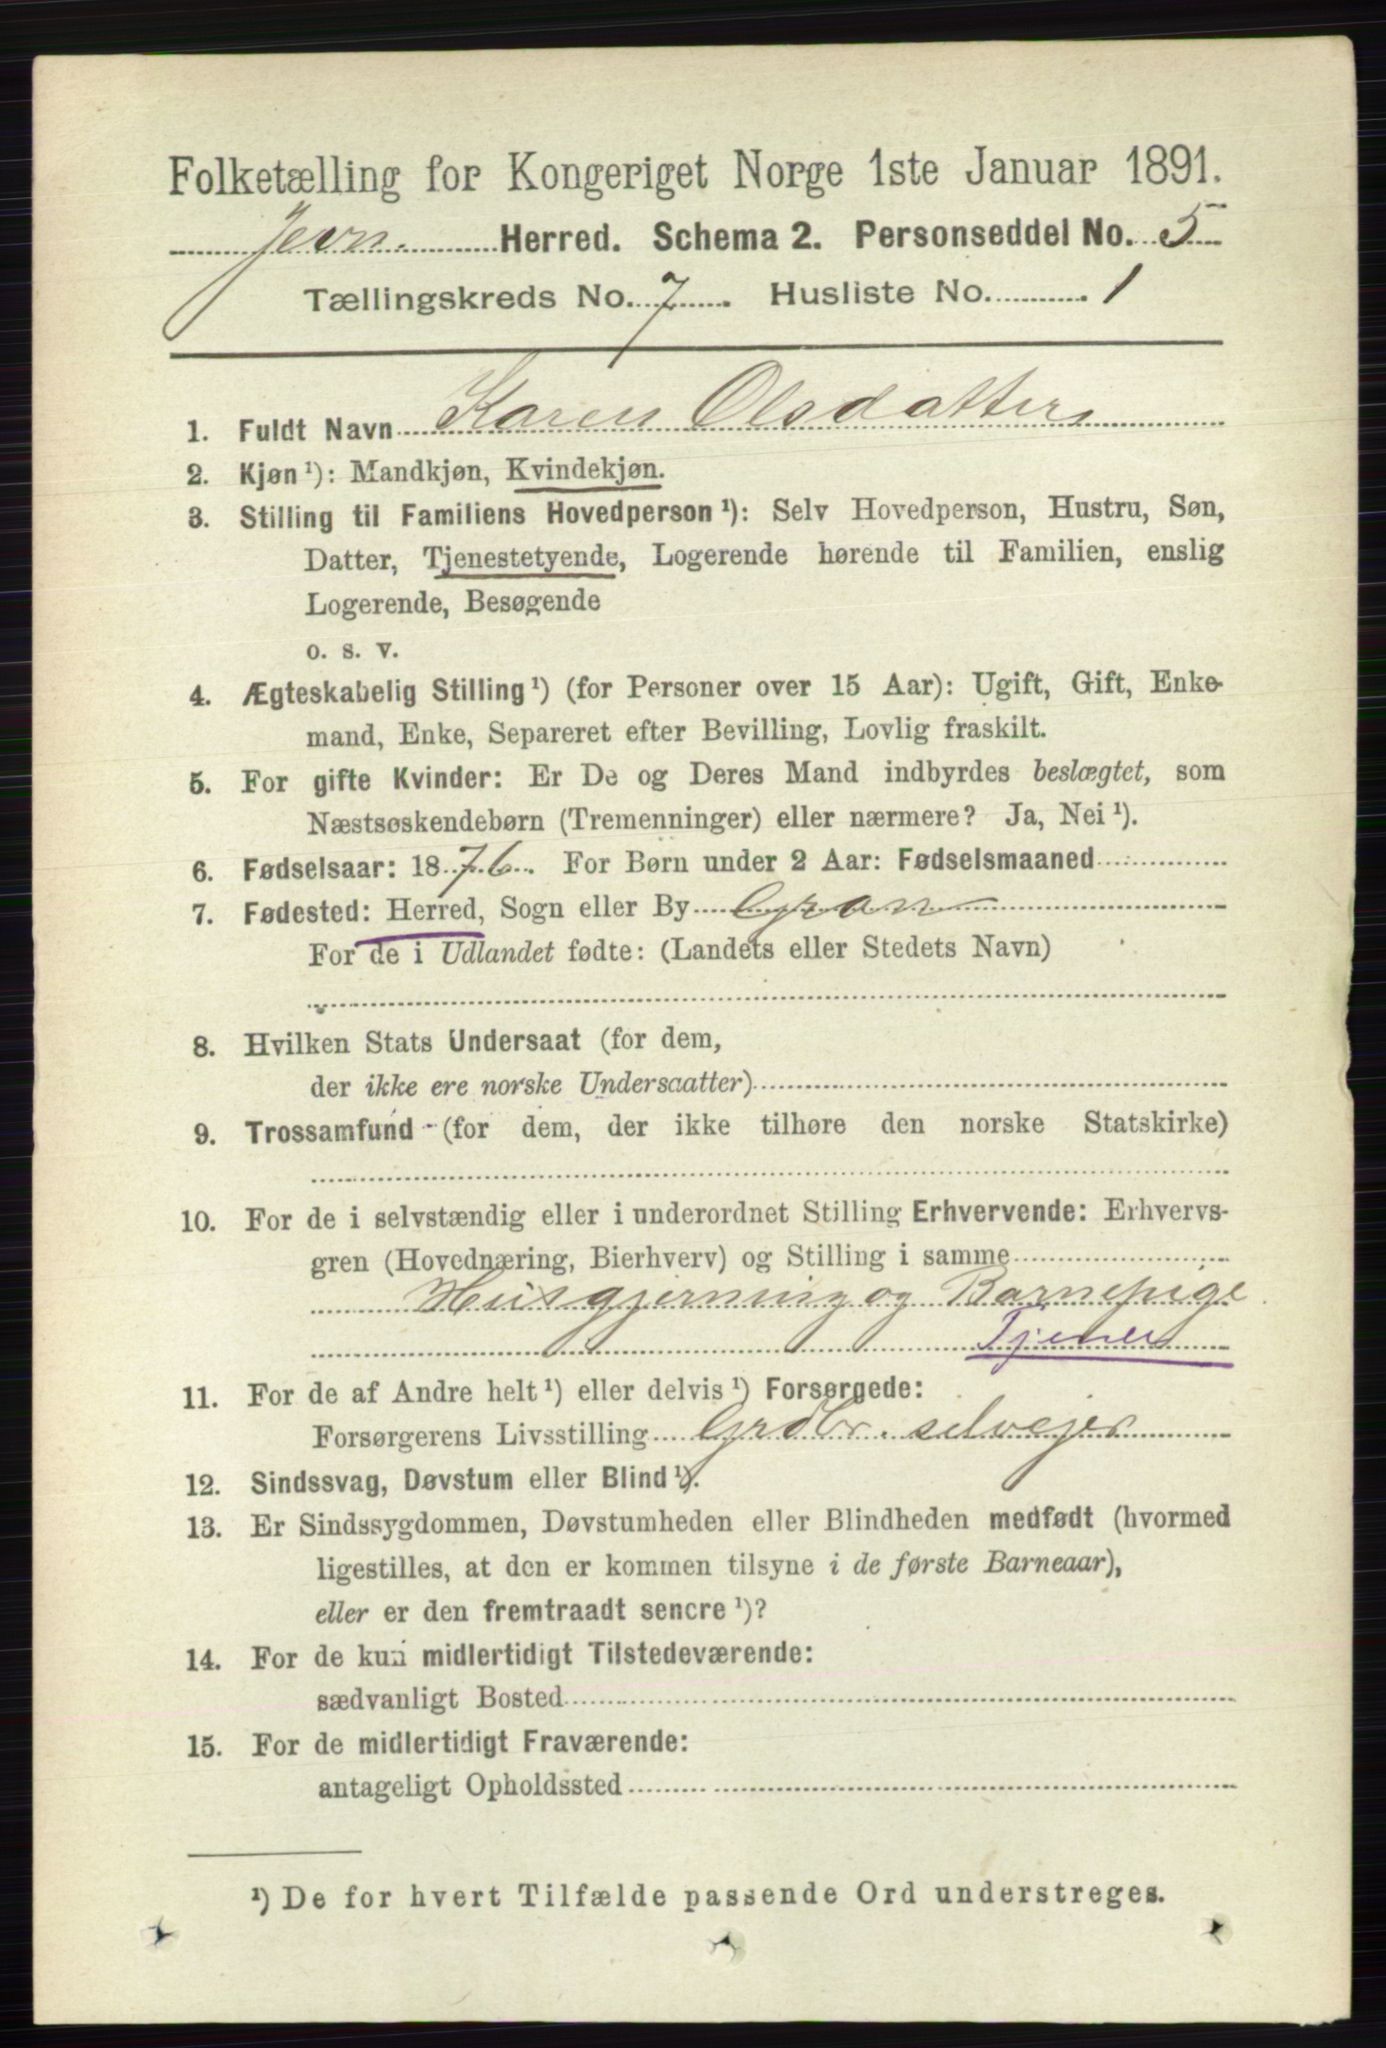 Folketælling for Kongeriget Norge 1ste Januar 1891.
Jevn. Herred. Schema 2. Personseddel No. 5
Tællingskreds No. 7. Husliste No. 1
1. Fuldt Navn Karen Olsdatter
2. Kjøn ¹): Mandkjøn, Kvindekjøn.
3. Stilling til Familiens Hovedperson ¹): Selv Hovedperson, Hustru, Søn,
Datter, Tjenestetyende, Logerende hørende til Familien, enslig
Logerende, Besøgende
o. s. v.
4. Ægteskabelig Stilling ¹) (for Personer over 15 Aar): Ugift, Gift, Enke-
mand, Enke, Separeret efter Bevilling, Lovlig fraskilt.
5. For gifte Kvinder: Er De og Deres Mand indbyrdes beslægtet, som
Næstsøskendebørn (Tremenninger) eller nærmere? Ja, Nei ¹).
6. Fødselsaar: 1876. For Børn under 2 Aar: Fødselsmaaned
7. Fødested: Herred, Sogn eller By Gran
For de i Udlandet fødte: (Landets eller Stedets Navn)
8. Hvilken Stats Undersaat (for dem,
der ikke ere norske Undersaatter)
9. Trossamfund (for dem, der ikke tilhøre den norske Statskirke)
10. For de i selvstændig eller i underordnet Stilling Erhvervende: Erhvervs-
gren (Hovednæring, Bierhverv) og Stilling i samme
Husgjerning og Barnepige
Tjener
11. For de af Andre helt ¹) eller delvis ¹) Forsørgede:
Forsørgerens Livsstilling Grdbr. selvejer
12. Sindssvag, Døvstum eller Blind ¹).
13. Er Sindssygdommen, Døvstumheden eller Blindheden medfødt (hvormed
ligestilles, at den er kommen tilsyne i de første Barneaar),
eller er den fremtraadt senere ¹)?
14. For de kun midlertidigt Tilstedeværende:
sædvanligt Bosted
15. For de midlertidigt Fraværende:
antageligt Opholdssted
¹) De for hvert Tilfælde passende Ord understreges.